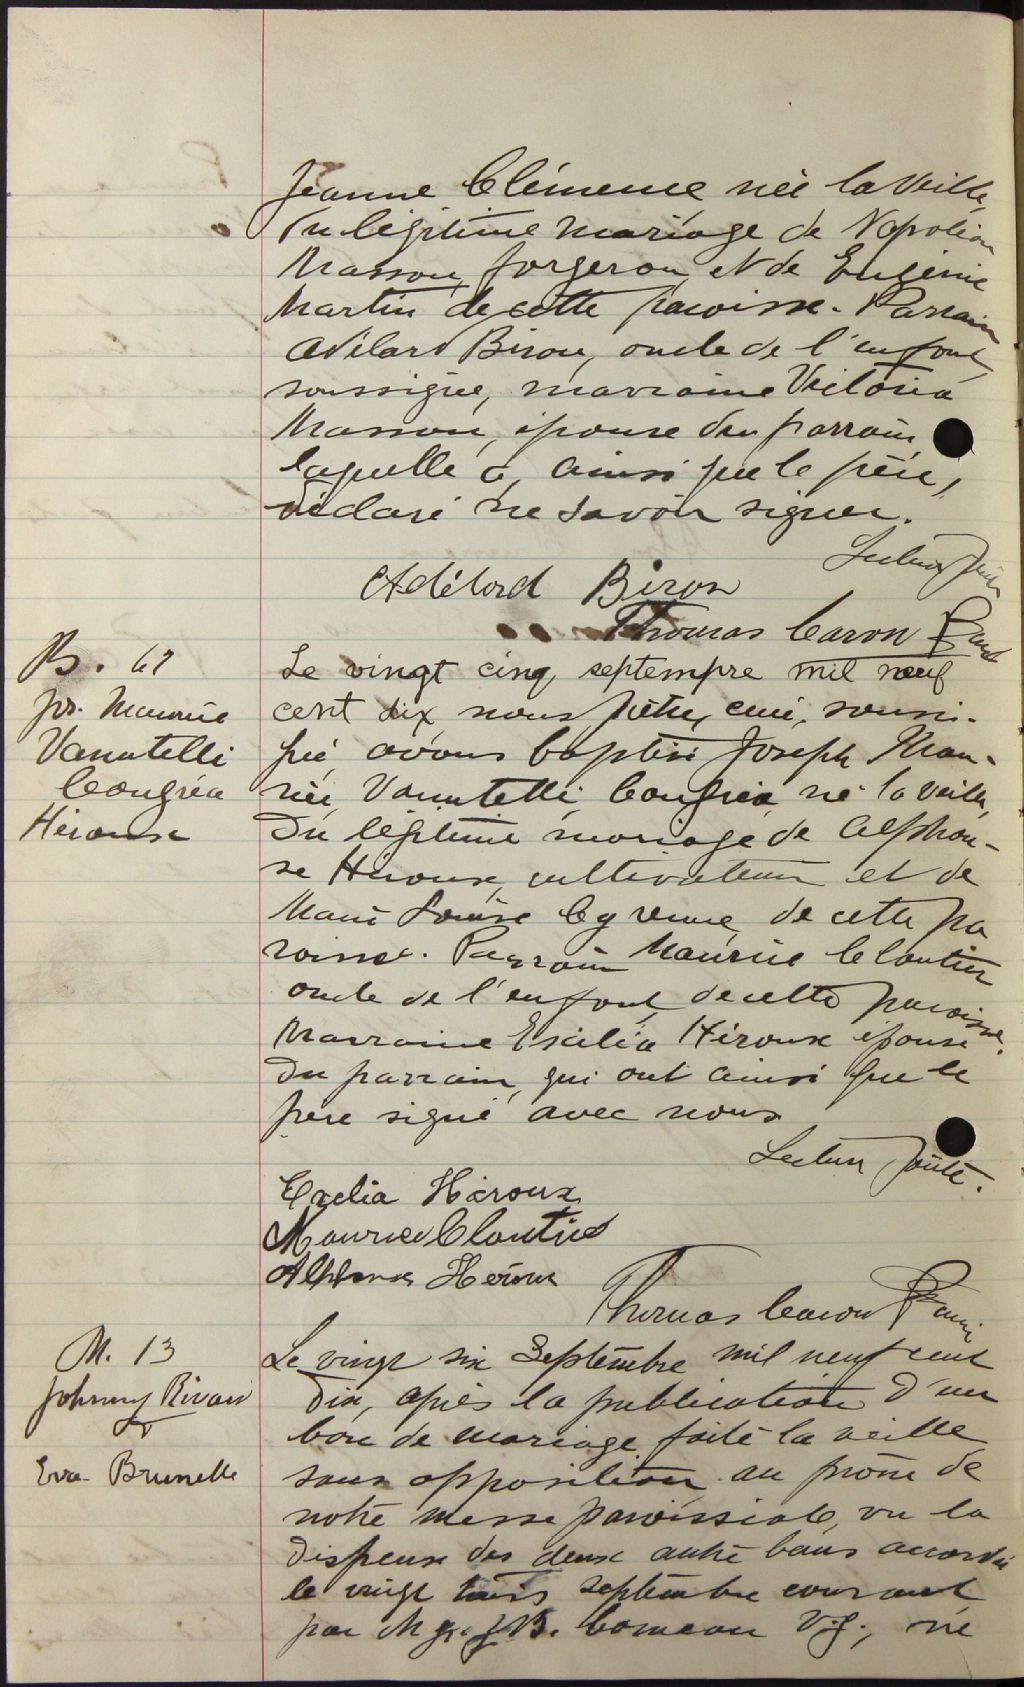 Jeanne Clémence née la veille,
du légitime mariage de Napoléon
Masson, forgeron, et de Eugénie
Martin de cette paroisse. Parrain
Adélard Biron, oncle de l'enfant,
soussigné, marraine Victoria
Masson, épouse du parrain,
laquelle a, ainsi que le père,
déclaré ne savoir signer.
Lecture faite
Adélard Biron
Thomas Caron Ptre curé
B. 67
Jos. Maurice
Vanutelli
Congréa
Héroux
Le vingt cinq septempre mil neuf
cent dix nous prêtre, curé, soussi-
gné avons baptisé Joseph Mau-
rice Vanutelli Congréa né la veille,
du légitime mariage de Alphon-
se Héroux, cultivateur et de
Marie Louise Cyrenne, de cette pa
roisse. Parrain Maurice Cloutier
oncle de l'enfant, de cette paroisse.
Marraine Exilia Héroux épouse
du parrain, qui ont ainsi que le
père signé avec nous
Lecture faite.
Exelia Héroux
Maurice Cloutier
Alphonse Heroux
Thomas Caron Ptre curé
M. 13
Johnny Rivard
&
Eva Brunelle
Le vingt six Septembre mil neuf cent
dix, après la publication d'un
ban de mariage faite la veille
sans opposition au prône de
notre messe paroissiale, vu la
dispense des deux autre bans accordée
le vingt trois septembre courant
par Mgr. J.B. Comeau V.g., né